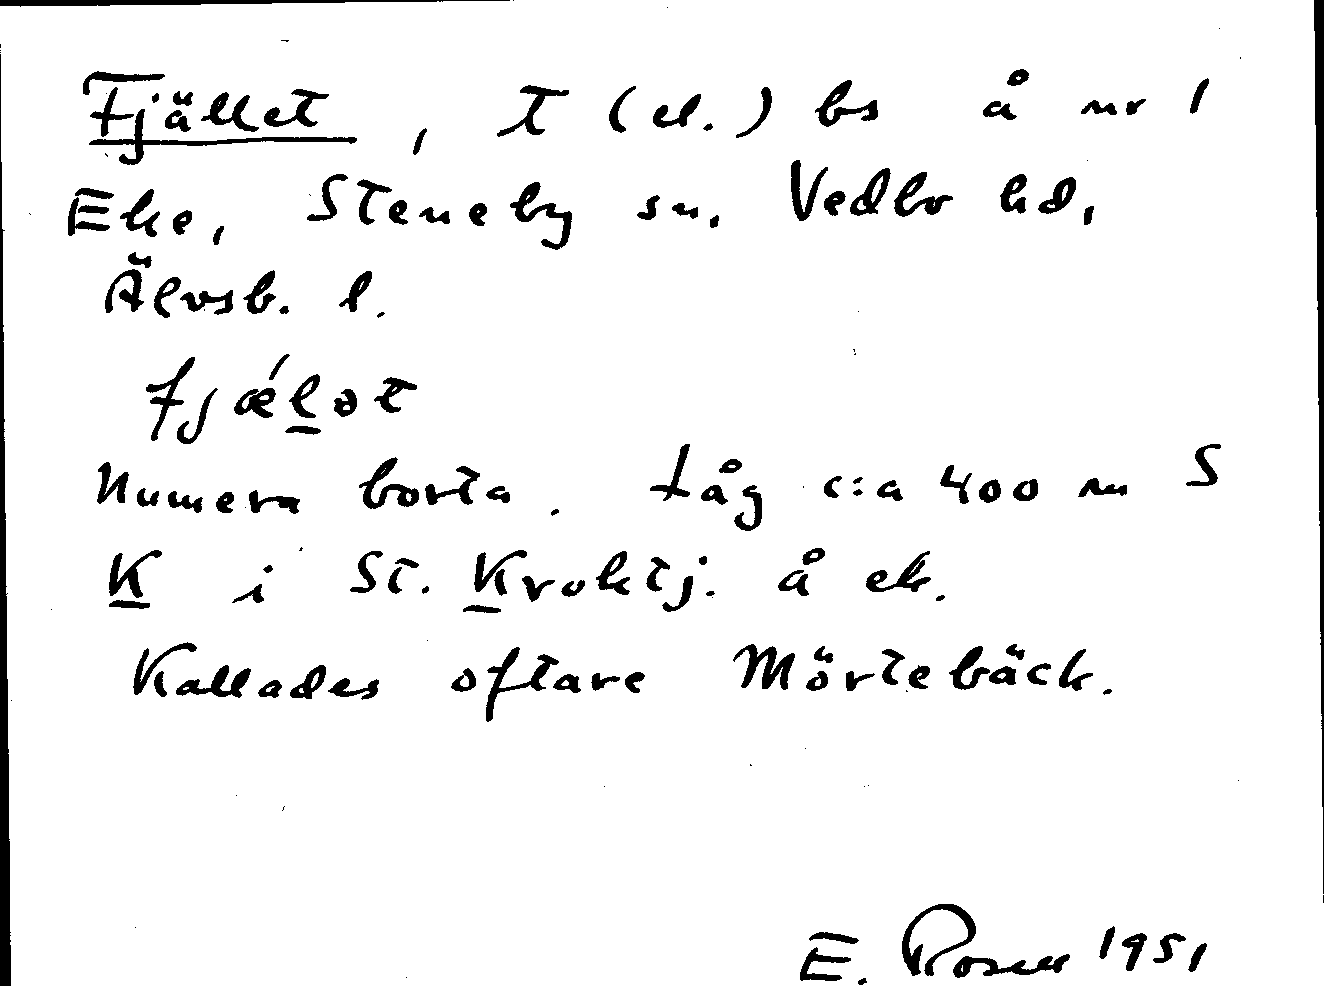 Fjället, t (el.) bs å nr 1
Eke, Steneby sn. Vedbo hd,
Älvsb. l.
fjǽl̲ət
Numera borta. Låg c:a 400 m S
K i St. Kroktj. å ek.
Kallades oftare Mörtebäck.
E. Rosell 1951